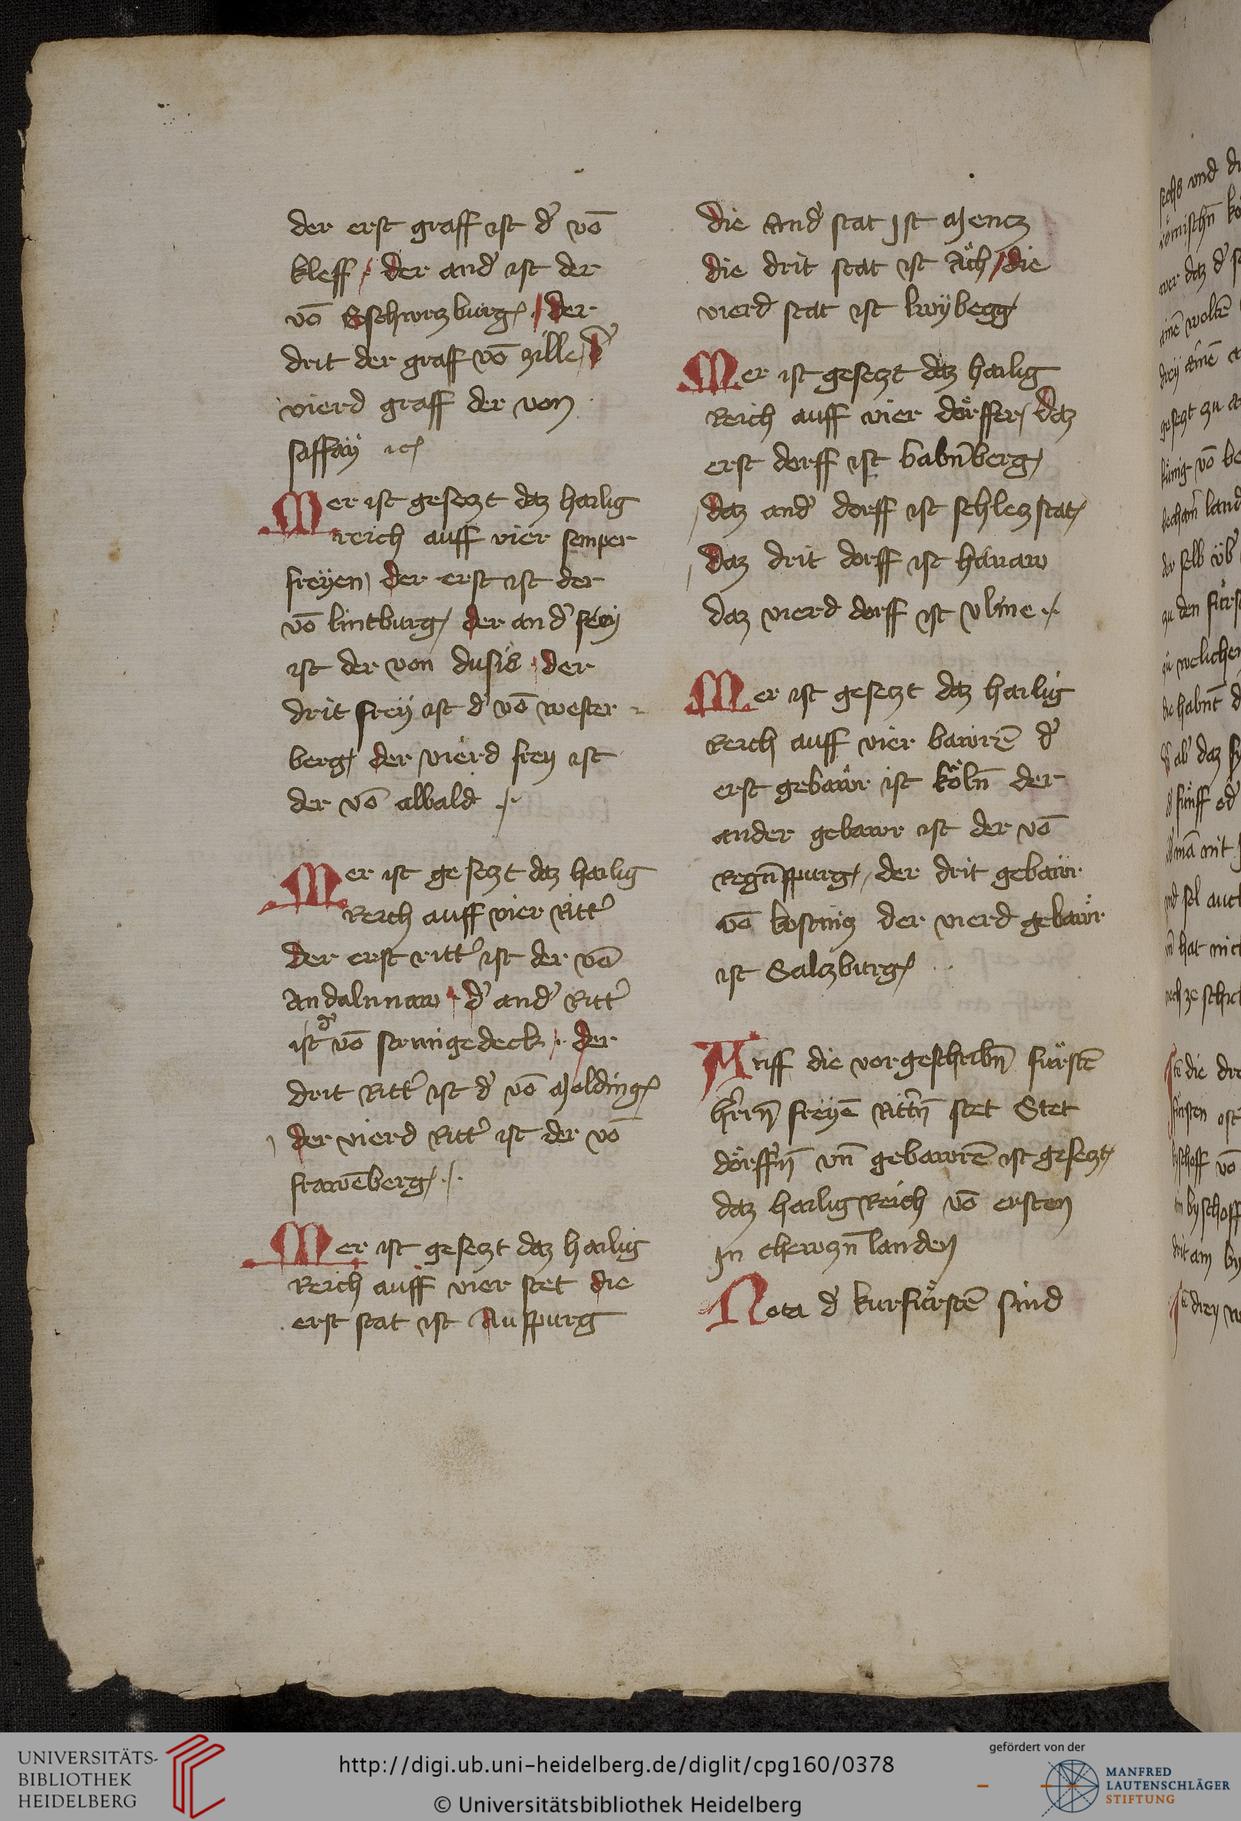 der erst graff ist d' vō
kleff / der and' ist der
vō Sschwrczburg / der
drit der graff vō zille / d'
vierd graff der von
saffaÿ ꝛc
Mer ist geseczt daz hailig
reich auff vier semper
freÿen / der erst ist der
vō lintburg / der and' freÿ
ist der von dusis / der
drit freÿ ist d' vō wester
berg / der vierd frey ist
der vō alwald
Mer ist geseczt daz hailig
Reich auff vier Ritt'
der erst ritt' ist der vō
Andalnnaw / d' and' Ritt'
ist d' vō strungedeck / der
drit Ritt' ist d' vō Melding
der vierd Ritt' ist der vō
frawēberg
Mer ist geseczt daz hailig
Reich auff vier stet die
erst stat ist Auspurg
die And' stat Ist Mencz
die drit stat ist Äch / die
vierd stat ist lwÿbegg
Mer ist geseczt daz hailig
Reich auff vier dörffer / daz
erst dorff ist babn̄berg
daz and' dorff ist schleczstat
daz drit dorff ist hanaw
daz vierd dorff ist vlme
Mer ist geseczt daz hailig
Reich auff vier bawrē d'
erst gebawr ist köln̄ der
ander gebawr ist der vō
Regn̄spurg / der drit gebawr
vō kostnicz der vierd gebawr
ist Salczburg
Auff die vorgeschribn̄ fürstē
h'rn̄ freyē Ritt'n̄ stet Stet
dörff'n̄ vn̄ gebawrē ist geseczt
daz hailig Reich vō ersten
In thewczn̄ landen
Nota d' kurfürstē sind
UNIVERSITÄTS-
BIBLIOTHEK
HEIDELBERG
http://digi.ub.uni-heidelberg.de/diglit/cpg160/0378
© Universitätsbibliothek Heidelberg
gefördert von der
MANFRED
LAUTENSCHLÄGER
STIFTUNG